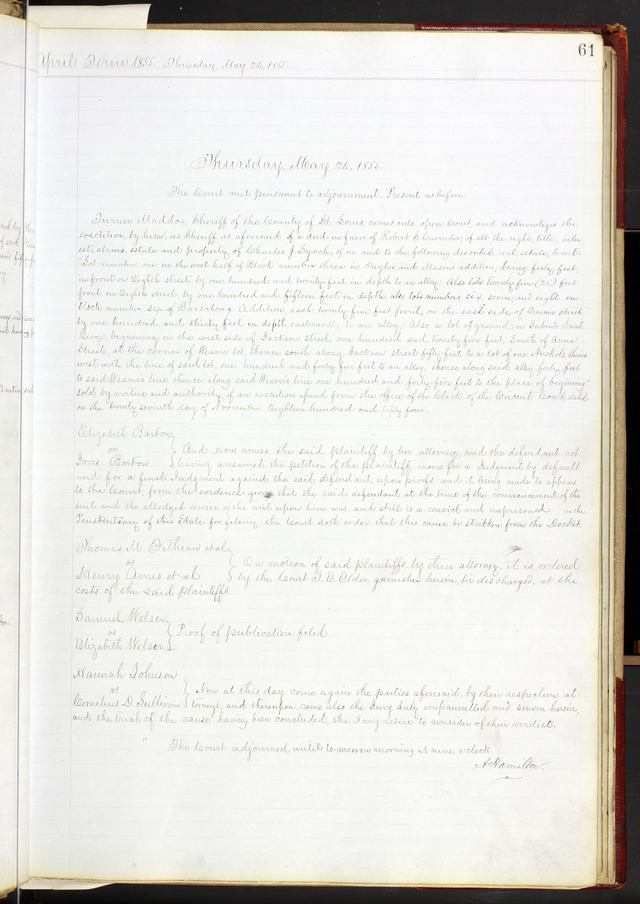 61
April Term 1855. Thursday, May 24, 1855.
Thursday, May 24, 1855.
The Court met pursuant to adjournment. Present as before.
Turner Maddox Sheriff of the County of St Louis, comes into open Court, and acknowledges the
execution by him, as Sheriff as aforesaid, of a deed in favor of Robert S. of all the right, title, inter
est, claim, estate and property of Charles J. Lynch, of, in, and to the following described real estate, to wit:
"Lot number one in the west half of Block number three in Taylor and Masons addition, being forty feet,
in front on Eighth street by one hundred and twenty feet in depth to an alley; Also lots twenty five (25) feet
front on Eighth street by one hundred and fifteen feet in depth, also lots numbers, six, seven, and eight in
block number six of Addition, each twenty five feet front, on the east side of street
by one hundred and thirty feet in depth eastwardly to an alley; Also a lot of ground in Saint
George, beginning on the west side of Jackson street, one hundred and twenty five feet, South of Anna
Street, at the corner of Weavers lot, thence south along Jackson street fifty feet to a lot of one Nichols, thence
west with the line of said lot, one hundred and forty five feet to an alley, thence along said alley forty feet
to said Weavers line thence along said Weavers line one hundred and forty five feet to the place of beginning"
sold by virtue and authority of an execution issued from the office of the Clerk of the Circuit Court, dated
on the twenty seventh day of November, Eighteen hundred and fifty four.
Elizabeth Barton,
vs
Barton } And now comes the said plaintiff by her attorney, and the defendant not
having answered the petition of the plaintiff moves for a Judgment by default
and for a final Judgment against the said defendant, upon proofs, and it being made to appear
to the Court, from the evidence given that the said defendant at the time of the commencement of this
suit and the alledged service of the writ upon him was, and still is a convict and imprisoned in the
Penitentiary of this State for felony, the Court doth order that this cause be stricken from the Docket.
Thomas M. et al
vs
Henry Ames et al } On motion of said plaintiffs by their attorney, it is ordered
by the Court T. B. Elder, garnishee herein, be discharged, at the
costs of the said plaintiffs.
Samuel Welser
vs
Elizabeth Welser } Proof of publication filed
Hannah Johnson
vs
Cornelius D. Sullivan } Now at this day come again the parties aforesaid, by their respective at
torneys, and thereupon came also the Jury duly empannelled and sworn herein,
and the trial of the cause having been concluded, the Jury retire to consider of their verdict.
The Court adjourned until to morrow morning at nine o'clock
A Hamilton.